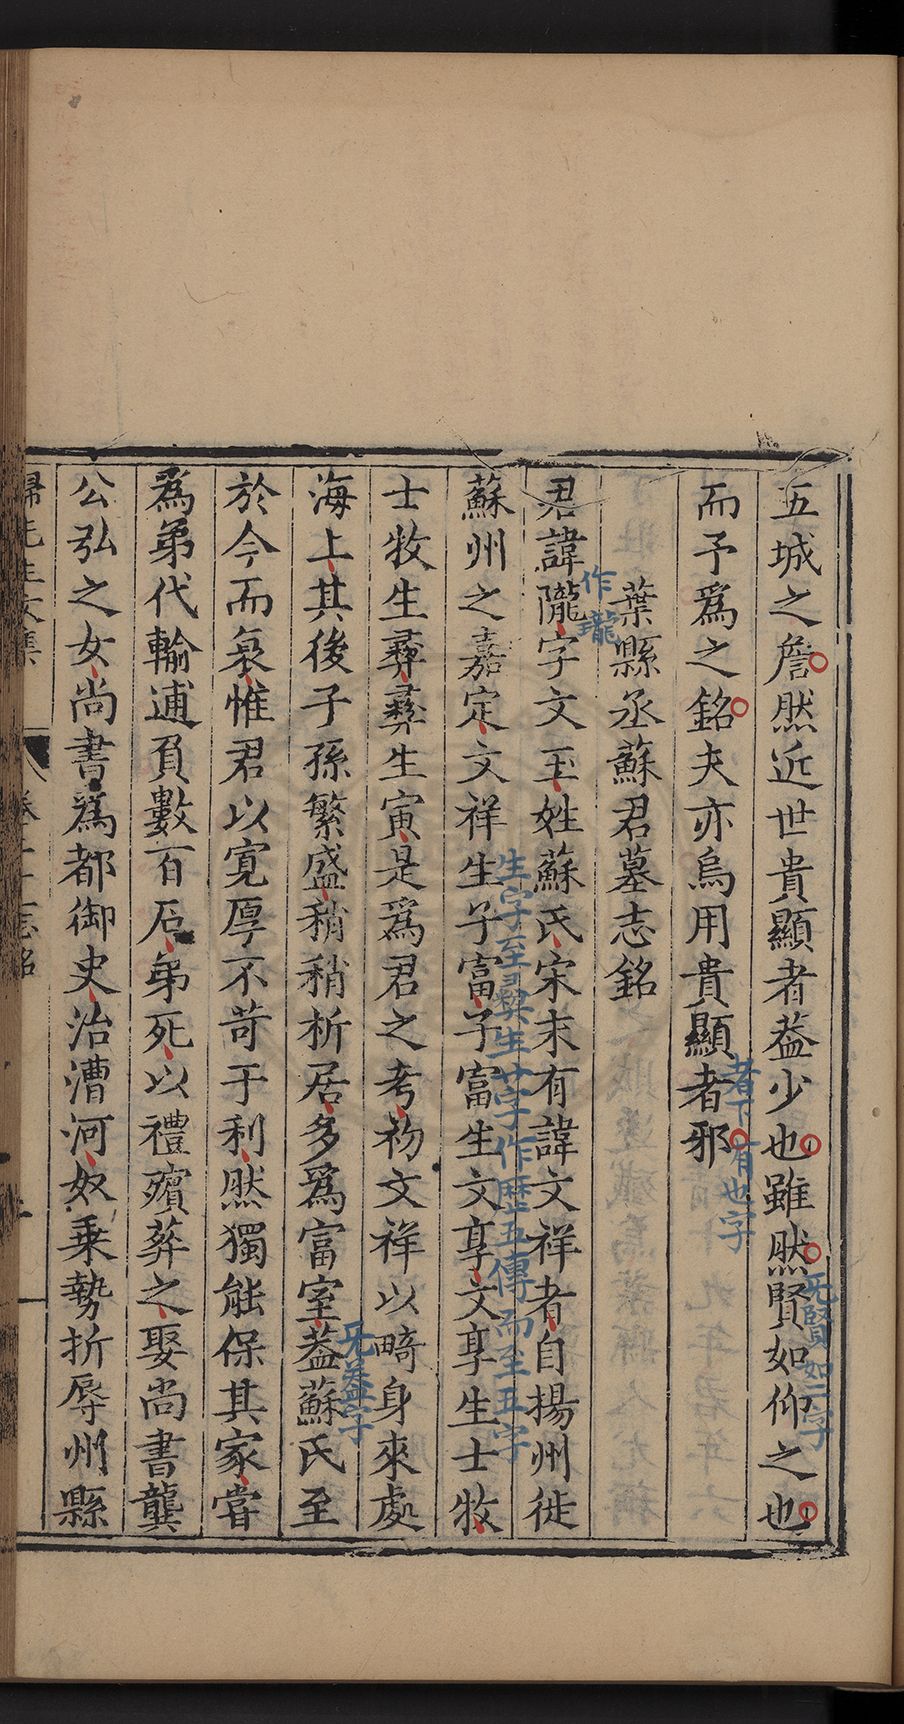 五城之詹然近世貴顯者葢少也雖然賢如仰之也
无賢如二字
而予爲之銘夫亦烏用貴顯者邪
者下有也字
葉縣丞蘇君墓志銘
作瓏
君諱隴字文玉姓蘇氏宋末有諱文祥者自揚州徙
生字至彛生廿字作歷五傳而至五字
蘇州之嘉定文祥生子富子富生文享文享生士牧
士牧生彛彛生寅是爲君之考初文祥以畸身來處
海上其後子孫繁盛稍稍析居多爲富室葢蘇氏至
无葢字
於今而衰惟君以寬厚不苛于利然獨能保其家嘗
爲弟代輸逋負數百石弟死以禮殯葬之娶尚書龔
公弘之女尚書爲都御史治漕河奴乗勢折辱州縣
歸先生文集